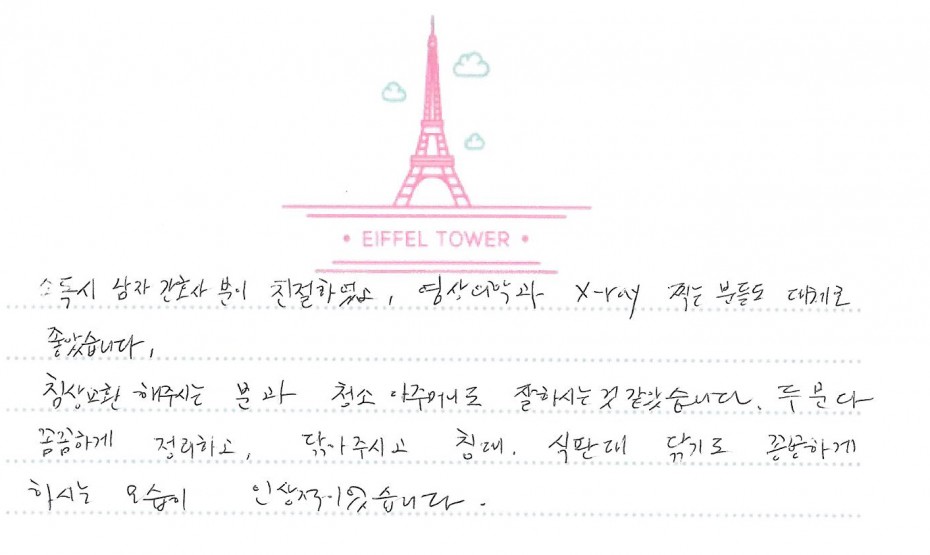 • EIFFEL TOWER •
소독시 남자 간호사 분이 친절하였고, 영상의학과 X-ray 찍는 분들도 대체로
좋았습니다.
침상교환 해주시는 분과 청소 아주머니도 잘하시는것 같았습니다. 두 분 다
꼼꼼하게 정리하고, 닦아주시고 침대. 식판대 닦기도 꼼꼼하게
하시는 모습이 인상적이었습니다.